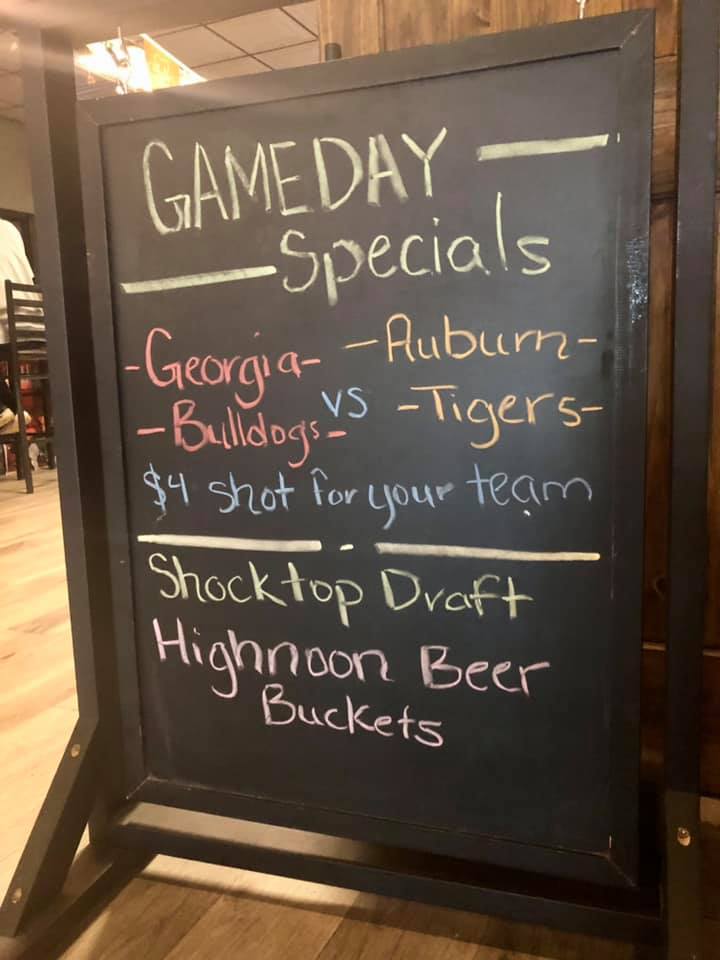 GAMEDAY -
- Specials
-Georgia- -Auburn-
-Bulldogs- vs -Tigers-
$4 shot for your team
Shocktop Draft
Highnoon Beer
Buckets